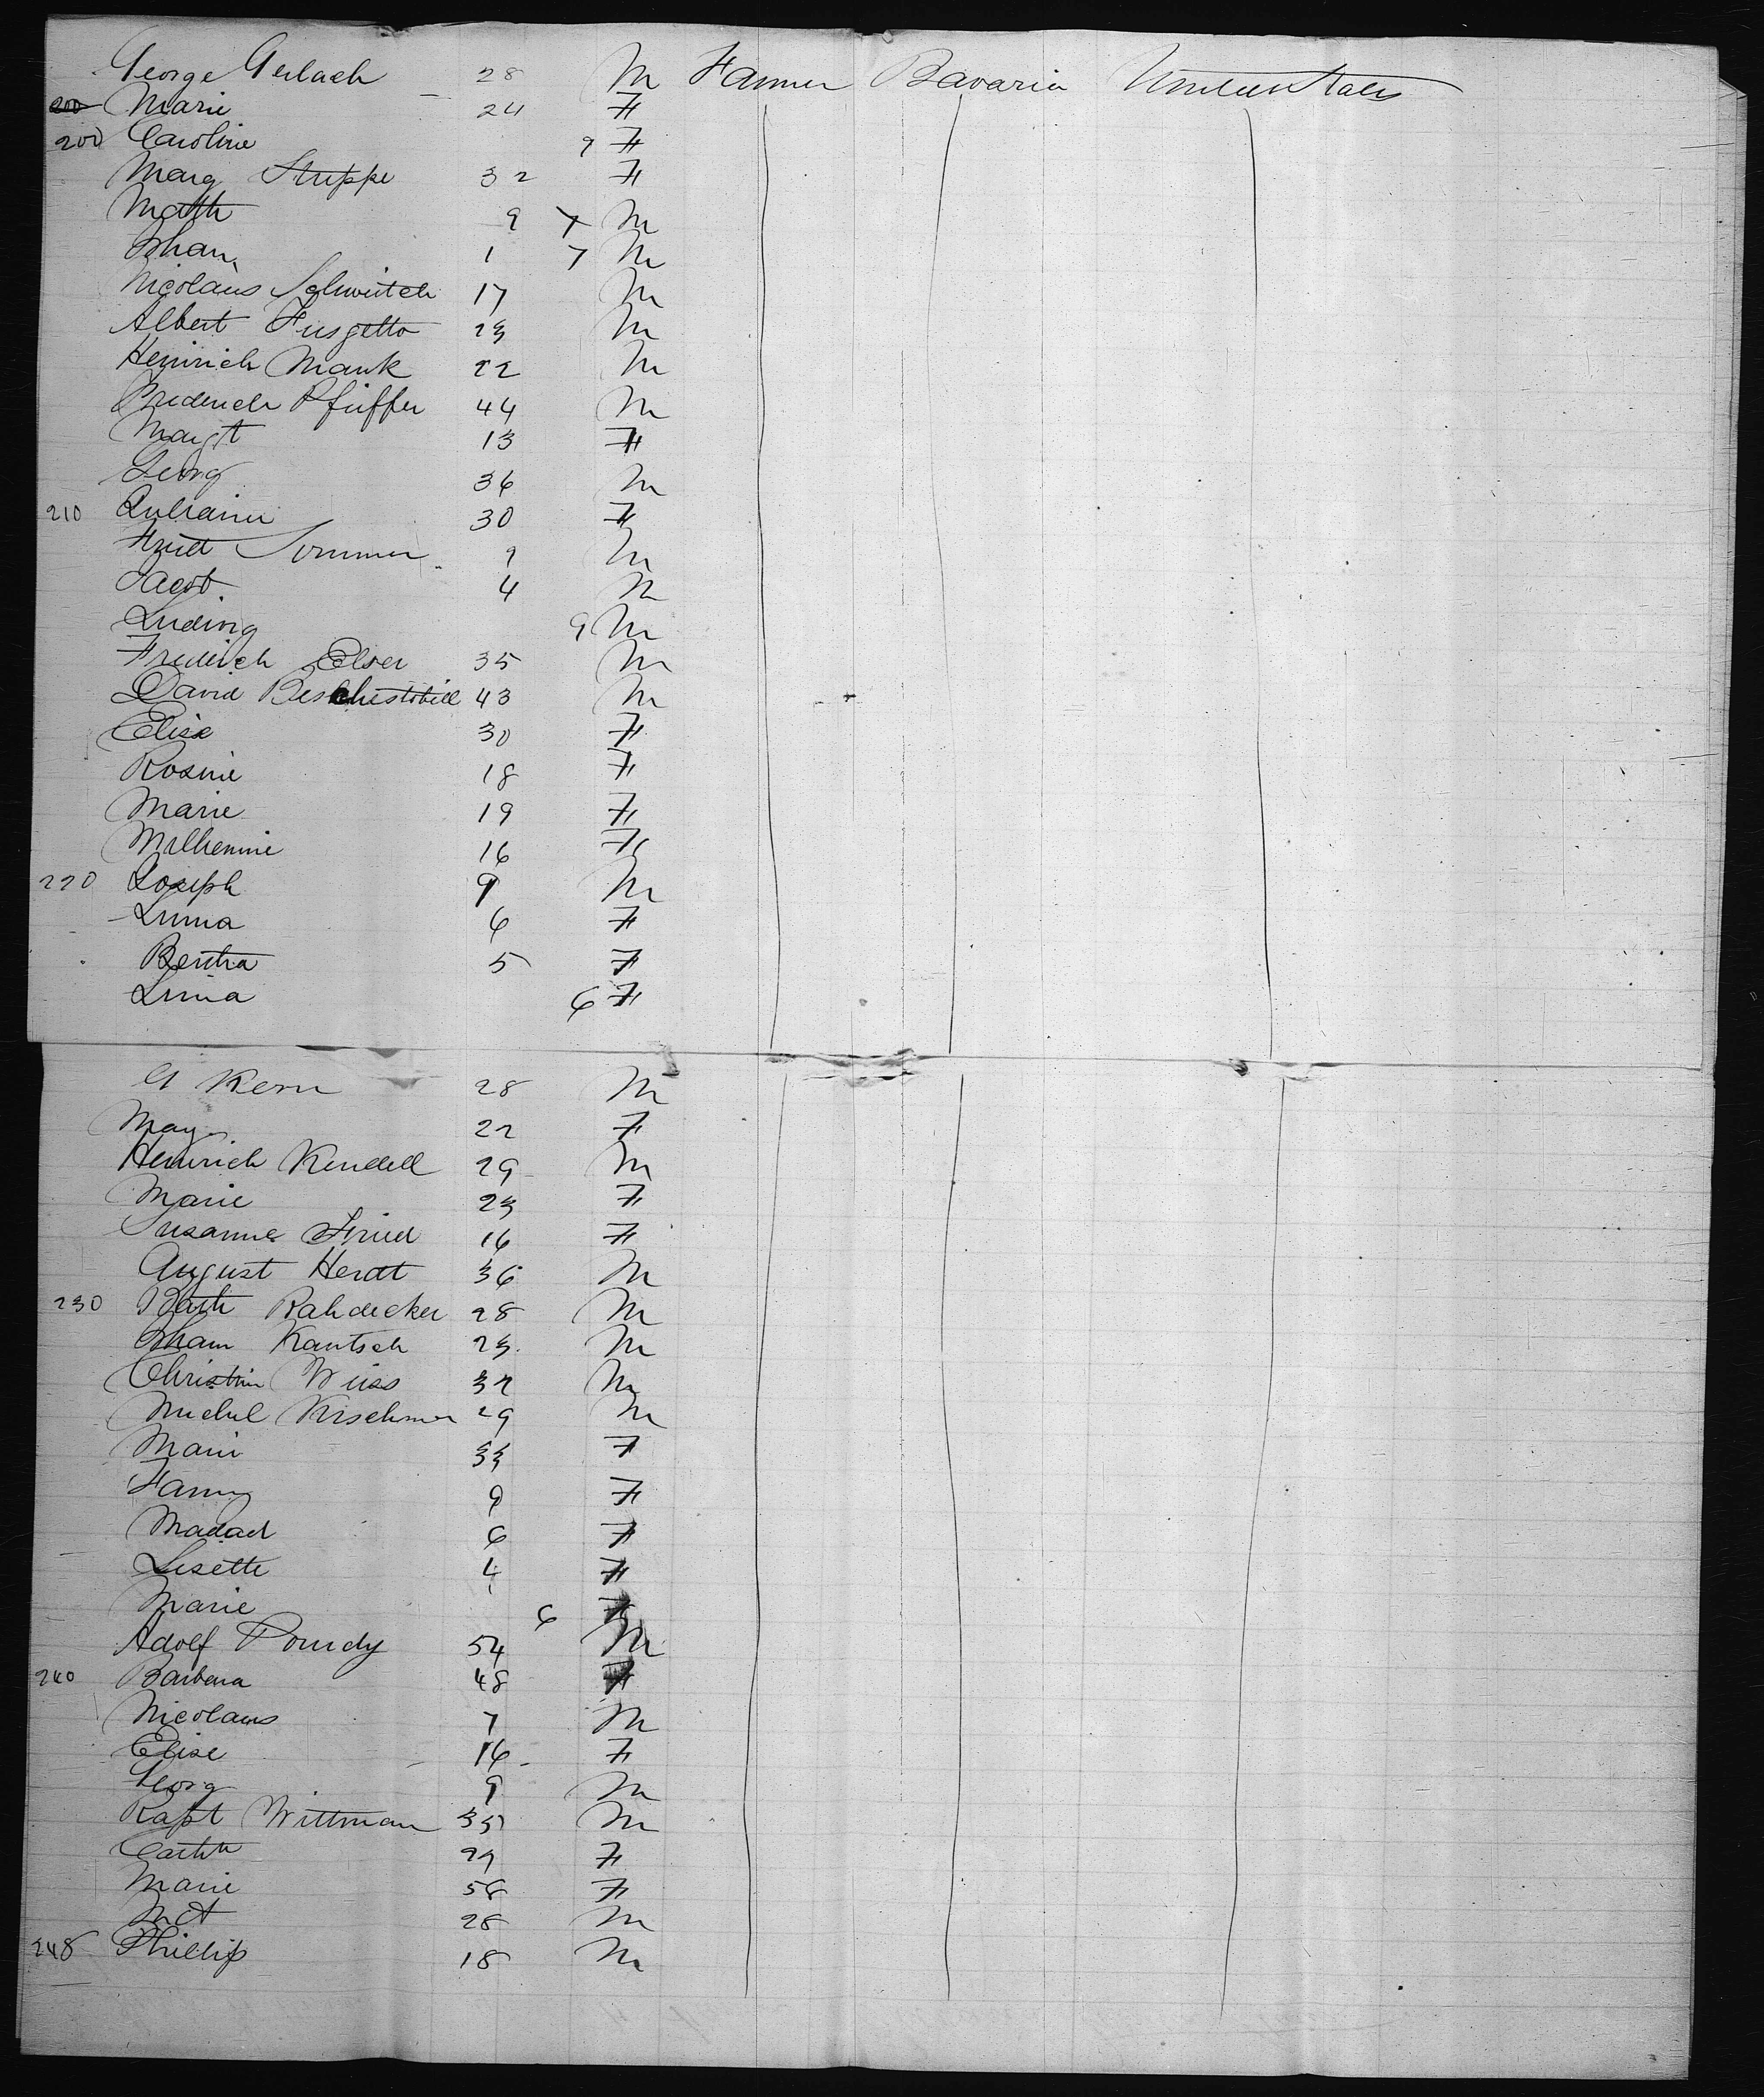 George Gerlach 28 M Farmer Bavaria United States
200 Marie 24 F
200 Caroline 9 F
Marg Struppe 32 F
Math 9 M
Johan 1 M
Nicolaus 17 M
Albert Fusgetto 23 M
Heinrich Mank 22 M
Frederich Pfeiffer 44 M
Margt 13 F
Georg 36 M
210 30 F
Sommer 9 M
Jacob 4 M
Ludwig 9 M
Frederich Elser 35 M
David 43 M
Elise 30 F
Rosine 18 F
Marie 19 F
Wilhemine 16 F
220 Joseph 9 M
6 F
Bertha 5 F
6 F
G Kern 28 M
May 22 F
Heinrich Kendell 29 M
Marie 23 F
Susanne Fried 16 F
August Herdt 36 M
230 Bath Rahdecker 28 M
Johann Kautsch 23 M
Christian Weiss 32 M
Michel Kirschmer 29 M
Marie 33 F
Fanny 9 F
6 F
Lisette 4 F
Marie 6 F
Adolf Pourdy 54 M
240 Barbera 48 F
Nicolaus 7 M
Elise 16 F
Georg 9 M
Wittman 35 M
Cath 29 F
Marie 58 F
28 M
248 Phillip 18 M